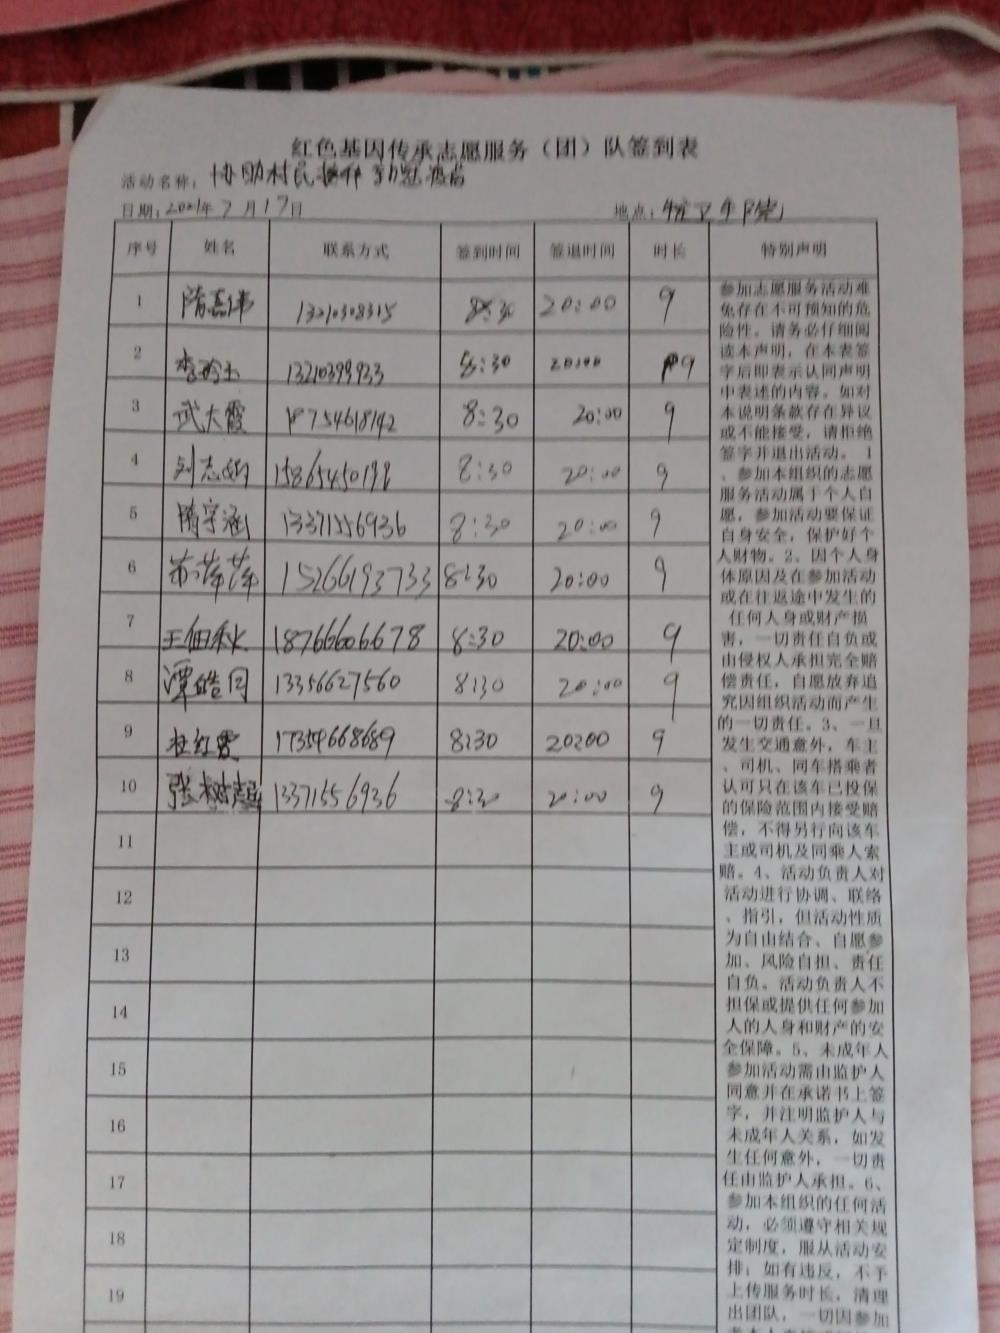 红色基因传承志愿服务（团）队签到表
活动名称：协助村民接种新冠疫苗
日期：2021年7月17日 地点：镇卫生院
序号 姓名 联系方式 签到时间 签退时间 时长 特别声明
1 隋嘉伟 13210308315 8:30 20:00 9
2 李玲玉 13210399933 8:30 20:00 9
3 武大霞 18754618142 8:30 20:00 9
4 刘志娟 8:30 20:00 9
5 隋宇涵 13371556936 8:30 20:00 9
6 萍萍 15266193733 8:30 20:00 9
7 王佃秋 18766606678 8:30 20:00 9
8 谭皓月 13356627560 8:30 20:00 9
9 杜红霞 17354668689 8:30 20:00 9
10 张树超 13371556936 8:30 20:00 9
11
12
13
14
15
16
17
18
19
参加志愿服务活动难
免存在不可预知的危
险性。请务必仔细阅
读本声明，在本表签
字后即表示认同声明
中表述的内容。如对
本说明条款存在异议
或不能接受，请拒绝
签字并退出活动。1
、参加本组织的志愿
服务活动属于个人自
愿，参加活动要保证
自身安全，保护好个
人财物。2、因个人身
体原因及在参加活动
或在往返途中发生的
任何人身或财产损
害，一切责任自负或
由侵权人承担完全赔
偿责任，自愿放弃追
究因组织活动而产生
的一切责任。3、一旦
发生交通意外，车主
、司机、同车搭乘者
认可只在该车已投保
的保险范围内接受赔
偿，不得另行向该车
主或司机及同乘人索
赔。4、活动负责人对
活动进行协调、联络
、指引，但活动性质
为自由结合、自愿参
加、风险自担、责任
自负。活动负责人不
担保或提供任何参加
人的人身和财产的安
全保障。5、未成年人
参加活动需由监护人
同意并在承诺书上签
字，并注明监护人与
未成年人关系，如发
生任何意外，一切责
任由监护人承担。6、
参加本组织的任何活
动，必须遵守相关规
定制度，服从活动安
排；如有违反，不予
上传服务时长，清理
出团队，一切因参加